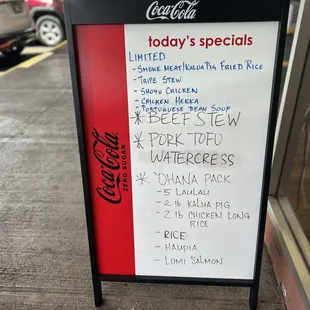 Coca-Cola
today's specials
LIMITED
- SMOKE MEAT/KALUA PIG FRIED RICE
- TRIPE STEW
- SHOYU CHICKEN
- CHICKEN HEKKA
- PORTUGUESE BEAN SOUP
* BEEF STEW
* PORK TOFU
WATERCRESS
* 'OHANA PACK
- 5 LAULAU
- 2 lb KALUA PIG
- 2 lb CHICKEN LONG
RICE
- RICE
- HAUPIA
- LOMI SALMON
Coca-Cola
ZERO SUGAR